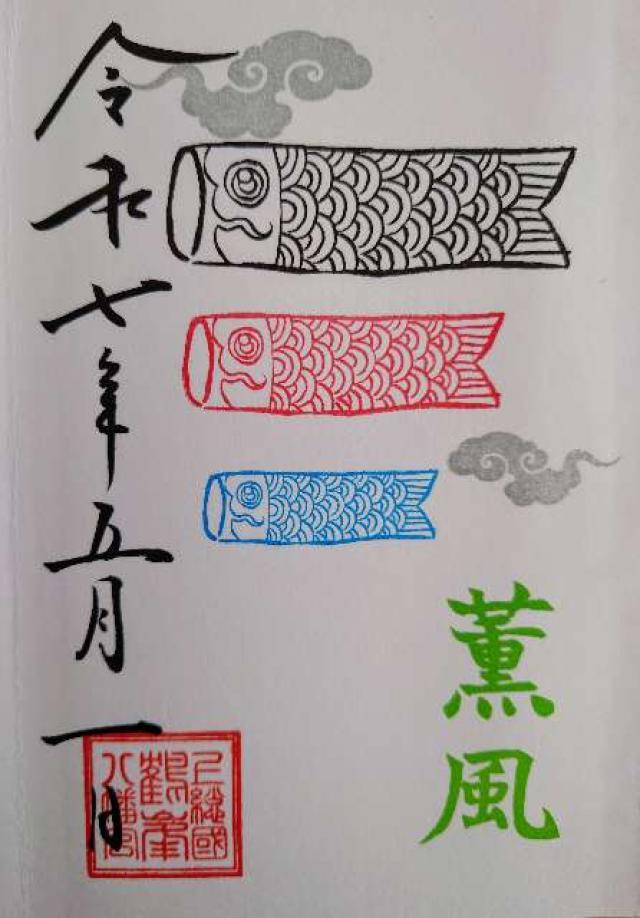 薫風
令和七年五月一日
上総國
鶴峯
八幡宮